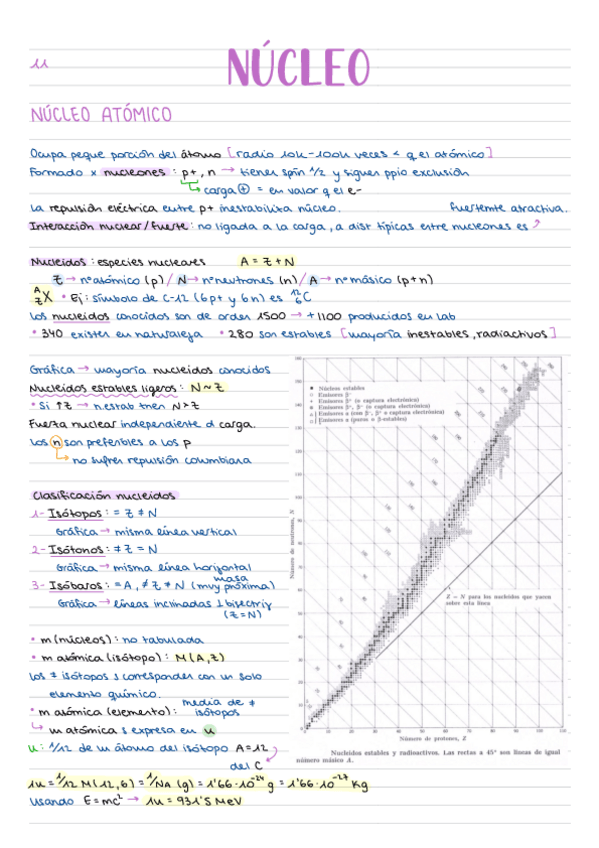 11
NÚCLEO
NÚCLEO ATÓMICO
Ocupa peque porción del átomo [radio 10k-100k veces < q el atómico]
Formado x nucleones : p+, n → tienen spin 1/2 y siguen ppio exclusión
↳ carga ⊕ = en valor q el e-
La repulsión eléctrica entre p+ inestabiliza núcleo. fuertemte atractiva.
Interacción nuclear/fuerte : no ligada a la carga, a dist típicas entre nucleones es ↗
Nucleidos : especies nucleares A = Z + N
Z → nº atómico (p) / N → nº neutrones (n) / A → nº másico (p+n)
A Z X • Ej : símbolo de C-12 (6p+ y 6n) es 12 6 C
Los nucleidos conocidos son de orden 1500 → +1100 producidos en lab
• 340 existen en naturaleza • 280 son estables [mayoría inestables, radiactivos]
Gráfica → mayoría nucleidos conocidos
Nucleidos estables ligeros : N ~ Z
• Si ↑Z → n.estab tnen N > Z
Fuerza nuclear independiente d carga.
Los n son preferibles a los p
↳ no sufren repulsión coulombiana
Clasificación nucleidos
1- Isótopos : = Z ≠ N
Gráfica → misma línea vertical
2- Isótonos : ≠ Z = N
Gráfica → misma línea horizontal
3- Isóbaros : = A, ≠ Z ≠ N (masa muy próxima)
Gráfica → líneas inclinadas ⊥ bisectriz
(Z = N)
• m (núcleos) : no tabulada
• m atómica (isótopo) : M(A,Z)
Los ≠ isótopos s corresponden con un solo
elemento químico.
• m atómica (elemento) : media de ≠ isótopos
↳ m atómica s expresa en u
u : 1/12 de m átomo del isótopo A = 12
del C
1u = 1/12 M(12,6) = 1/Na (g) = 1'66·10^-24 g = 1'66·10^-27 kg
Usando E = mc² → 1u = 931'5 MeV
Núcleos estables
Emisores β-
Emisores β+ (o captura electrónica)
Emisores β-, β+ (o captura electrónica)
Emisores α (con β-, β+ o captura electrónica)
Emisores α (puros o β-estables)
Z = N para los nucleidos que yacen
sobre esta línea
Número de neutrones, N
Número de protones, Z
Nucleidos estables y radioactivos. Las rectas a 45° son líneas de igual
número másico A.